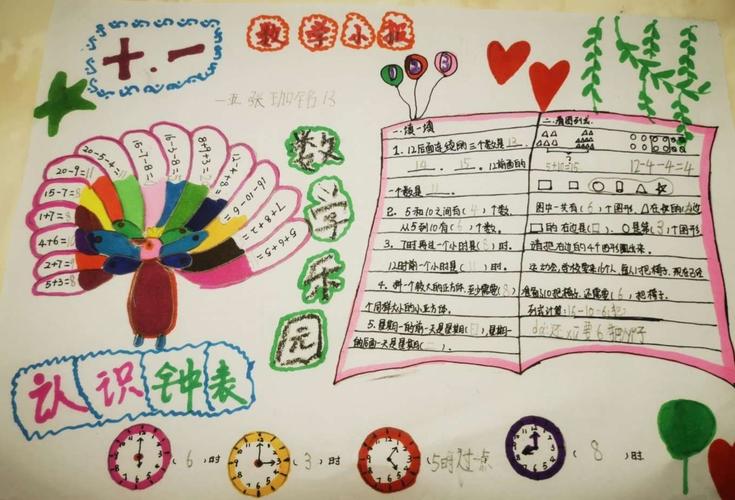 十.一
数学小报
数学乐园
20-9=11
15-7=8
1+7=8
4+6=10
2+7=9
5+3=8
20-5-4=11
16-3-8=
8+9+3=
16-10-6=
7+8+2=
5+6+5=
一.填一填
1.12后面连续的三个数是13、
14、15。12前面的
一个数是11。
2.5和10之间有(4)个数,
从5到10有(6)个数。
3.7时再过一个小时是(8)时.
12时前一个小时是(11)时。
4.拼一个较大的正方体,至少需要(8)
个同样大小的小正方体。
5.星期一的前一天是星期(日),星期一
的后面一天是星期(二)。
二.看图列式.
?
5+10=15
12-4-4=4
图中一共有(6)个图形.
□的右边是(□),○是第(3)个图形
请把右边的4个图形圈出来.
准备310把椅子,还需要(6)把椅子.
列式计算:16-10=6(把)
认识钟表
(6)时
(3)时
5时过一点
(8)时